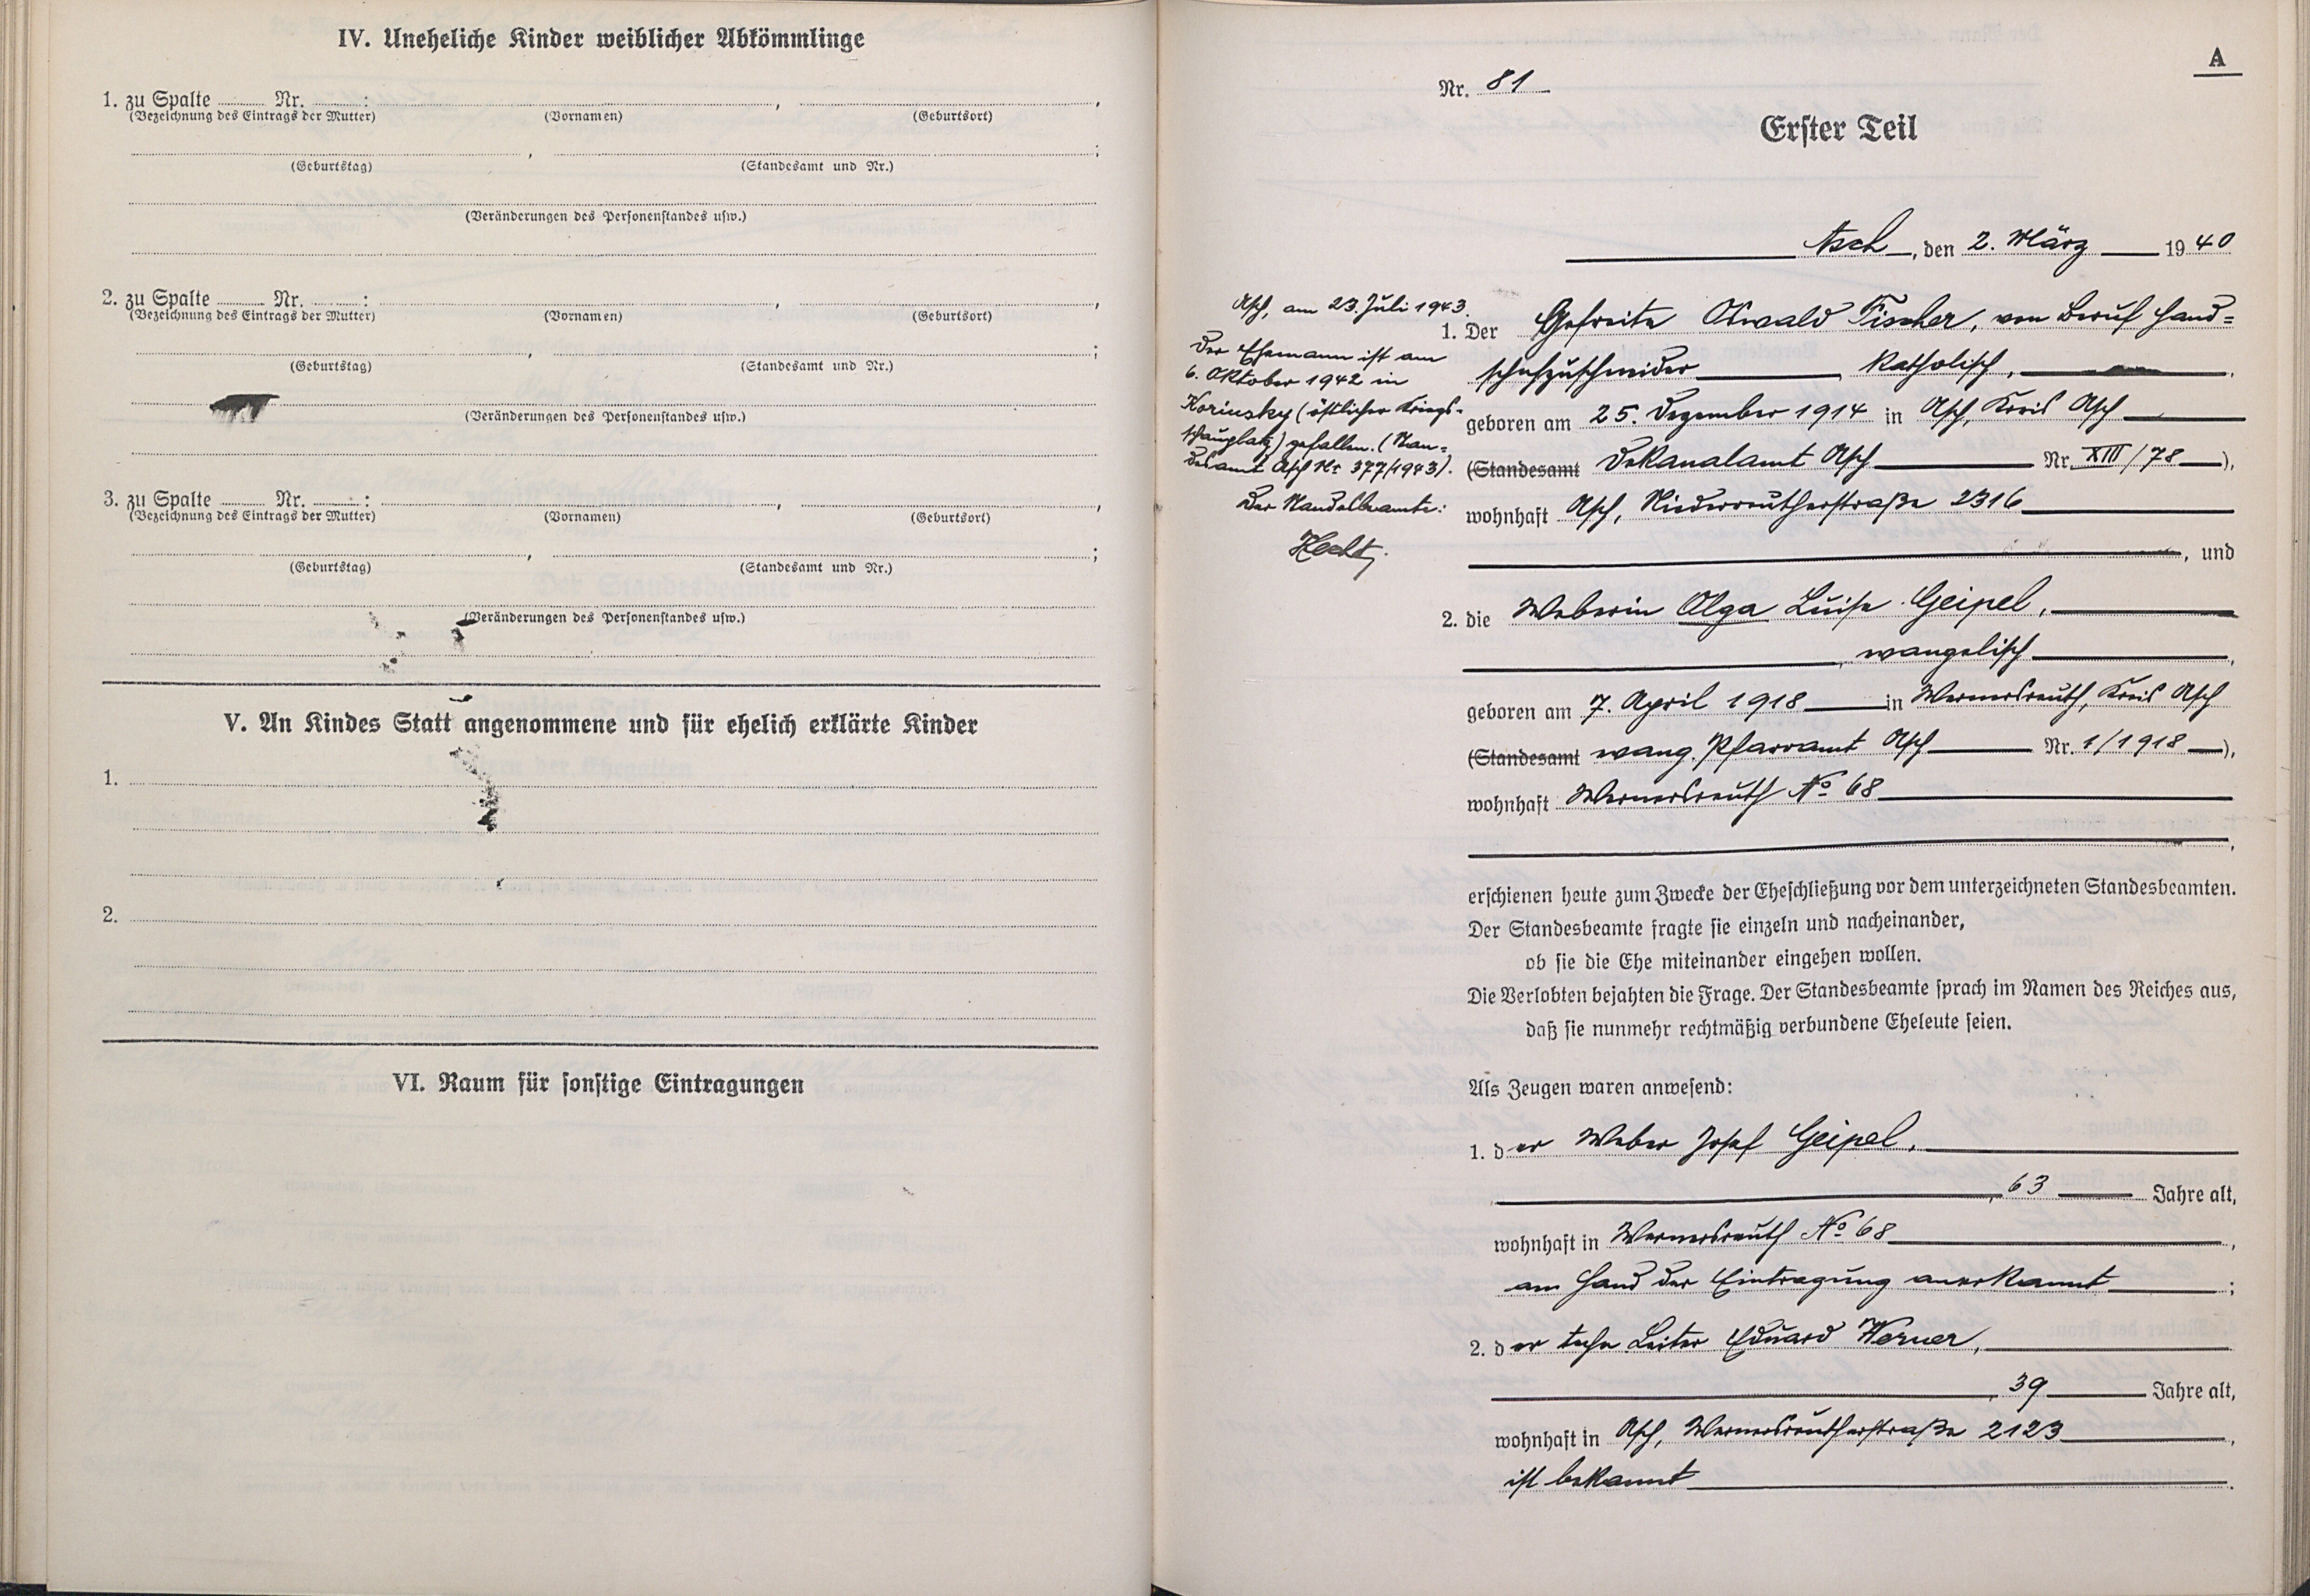 IV. Uneheliche Kinder weiblicher Abkömmlinge
1. zu Spalte ........ Nr. ........ : ........ , ........ ,
(Bezeichnung des Eintrags der Mutter) (Vornamen) (Geburtsort)
........ , ........ ;
(Geburtstag) (Standesamt und Nr.)
(Veränderungen des Personenstandes usw.)
2. zu Spalte ........ Nr. ........ : ........ , ........ ,
(Bezeichnung des Eintrags der Mutter) (Vornamen) (Geburtsort)
........ , ........ ;
(Geburtstag) (Standesamt und Nr.)
(Veränderungen des Personenstandes usw.)
3. zu Spalte ........ Nr. ........ : ........ , ........ ,
(Bezeichnung des Eintrags der Mutter) (Vornamen) (Geburtsort)
........ , ........ ;
(Geburtstag) (Standesamt und Nr.)
(Veränderungen des Personenstandes usw.)
V. An Kindes Statt angenommene und für ehelich erklärte Kinder
1.
2.
VI. Raum für sonstige Eintragungen
A
Nr. 81
Erster Teil
Asch, den 2. März 1940
Asch, am 23. Juli 1943.
Der Ehemann ist am
6. Oktober 1942 in
Korinsky (östlicher Kriegs-
schauplatz) gefallen. (Stan-
desamt Asch Nr 377/1943).
Der Standesbeamte:
Hecht
1. Der Gefreite Oswald Fischer, von Beruf Hand=
schuhzuschneider, katholisch,
geboren am 25. Dezember 1914 in Asch, Kreis Asch
(Standesamt Dekanalamt Asch Nr. XIII/78),
wohnhaft Asch, Niederreutherstraße 2316
, und
2. die Weberin Olga Luise Geipel,
, evangelisch,
geboren am 7. April 1918 in Wernersreuth, Kreis Asch
(Standesamt evang. Pfarramt Asch Nr. 1/1918),
wohnhaft Wernersreuth No 68
,
erschienen heute zum Zwecke der Eheschließung vor dem unterzeichneten Standesbeamten.
Der Standesbeamte fragte sie einzeln und nacheinander,
ob sie die Ehe miteinander eingehen wollen.
Die Verlobten bejahten die Frage. Der Standesbeamte sprach im Namen des Reiches aus,
daß sie nunmehr rechtmäßig verbundene Eheleute seien.
Als Zeugen waren anwesend:
1. der Weber Josef Geipel,
, 63 Jahre alt,
wohnhaft in Wernersreuth No 68,
am Hand der Eintragung anerkannt;
2. der techn Leiter Eduard Werner,
, 39 Jahre alt,
wohnhaft in Asch, Wernersreutherstraße 2123,
ist bekannt.